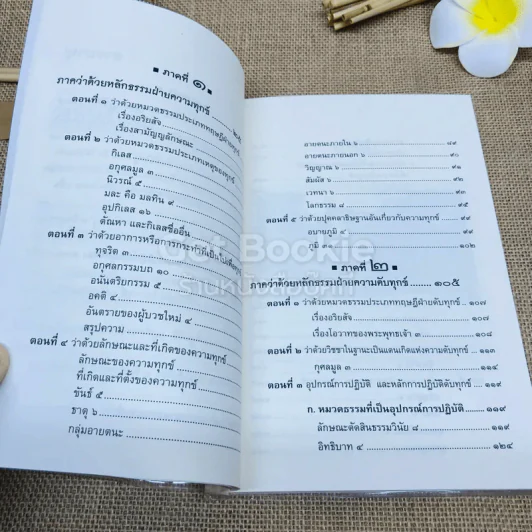 ■ ภาคที่ ๑ ■
ภาคว่าด้วยหลักธรรมฝ่ายความทุกข์
ตอนที่ ๑ ว่าด้วยหมวดธรรมประเภททฤษฎีฝ่ายทุกข์
เรื่องอริยสัจ
เรื่องสามัญญลักษณะ
ตอนที่ ๒ ว่าด้วยหมวดธรรมประเภทเหตุของทุกข์
กิเลส
อกุศลมูล ๓
นิวรณ์ ๕
มละ คือ มลทิน ๙
อุปกิเลส ๑๖
ตัณหา และกิเลสชื่ออื่น
ตอนที่ ๓ ว่าด้วยอาการหรือการกระทำที่เป็นไปเพื่อทุกข์
ทุจริต ๓
อกุศลกรรมบถ ๑๐
อนันตริยกรรม ๕
อคติ ๔
อันตรายของผู้บวชใหม่ ๔
สรุปความ
ตอนที่ ๔ ว่าด้วยลักษณะและที่เกิดของความทุกข์
ลักษณะของความทุกข์
ที่เกิดและที่ตั้งของความทุกข์
ขันธ์ ๕
ธาตุ ๖
กลุ่มอายตนะ
อายตนะภายใน ๖ ๘๙
อายตนะภายนอก ๖ ๙๐
วิญญาณ ๖ ๙๑
สัมผัส ๖ ๙๒
เวทนา ๖ ๙๓
โลกธรรม ๘ ๙๓
ตอนที่ ๕ ว่าด้วยปุคคลาธิษฐานอันเกี่ยวกับความทุกข์ ๙๙
อบายภูมิ ๔ ๙๙
ภูมิ ๑๐๒
■ ภาคที่ ๒ ■
ภาคว่าด้วยหลักธรรมฝ่ายความดับทุกข์ ๑๐๕
ตอนที่ ๑ ว่าด้วยหมวดธรรมประเภททฤษฎีฝ่ายดับทุกข์ ๑๐๗
เรื่องอริยสัจ ๑๐๗
เรื่องโอวาทของพระพุทธเจ้า ๓ ๑๐๘
ตอนที่ ๒ ว่าด้วยวิชชาในฐานะเป็นแดนเกิดแห่งความดับทุกข์ ๑๑๓
กุศลมูล ๓ ๑๑๔
ตอนที่ ๓ อุปกรณ์การปฏิบัติ และหลักการปฏิบัติดับทุกข์ ๑๑๙
ก. หมวดธรรมที่เป็นอุปกรณ์การปฏิบัติ ๑๑๙
ลักษณะตัดสินธรรมวินัย ๘ ๑๑๙
อิทธิบาท ๔ ๑๒๔
Bookie